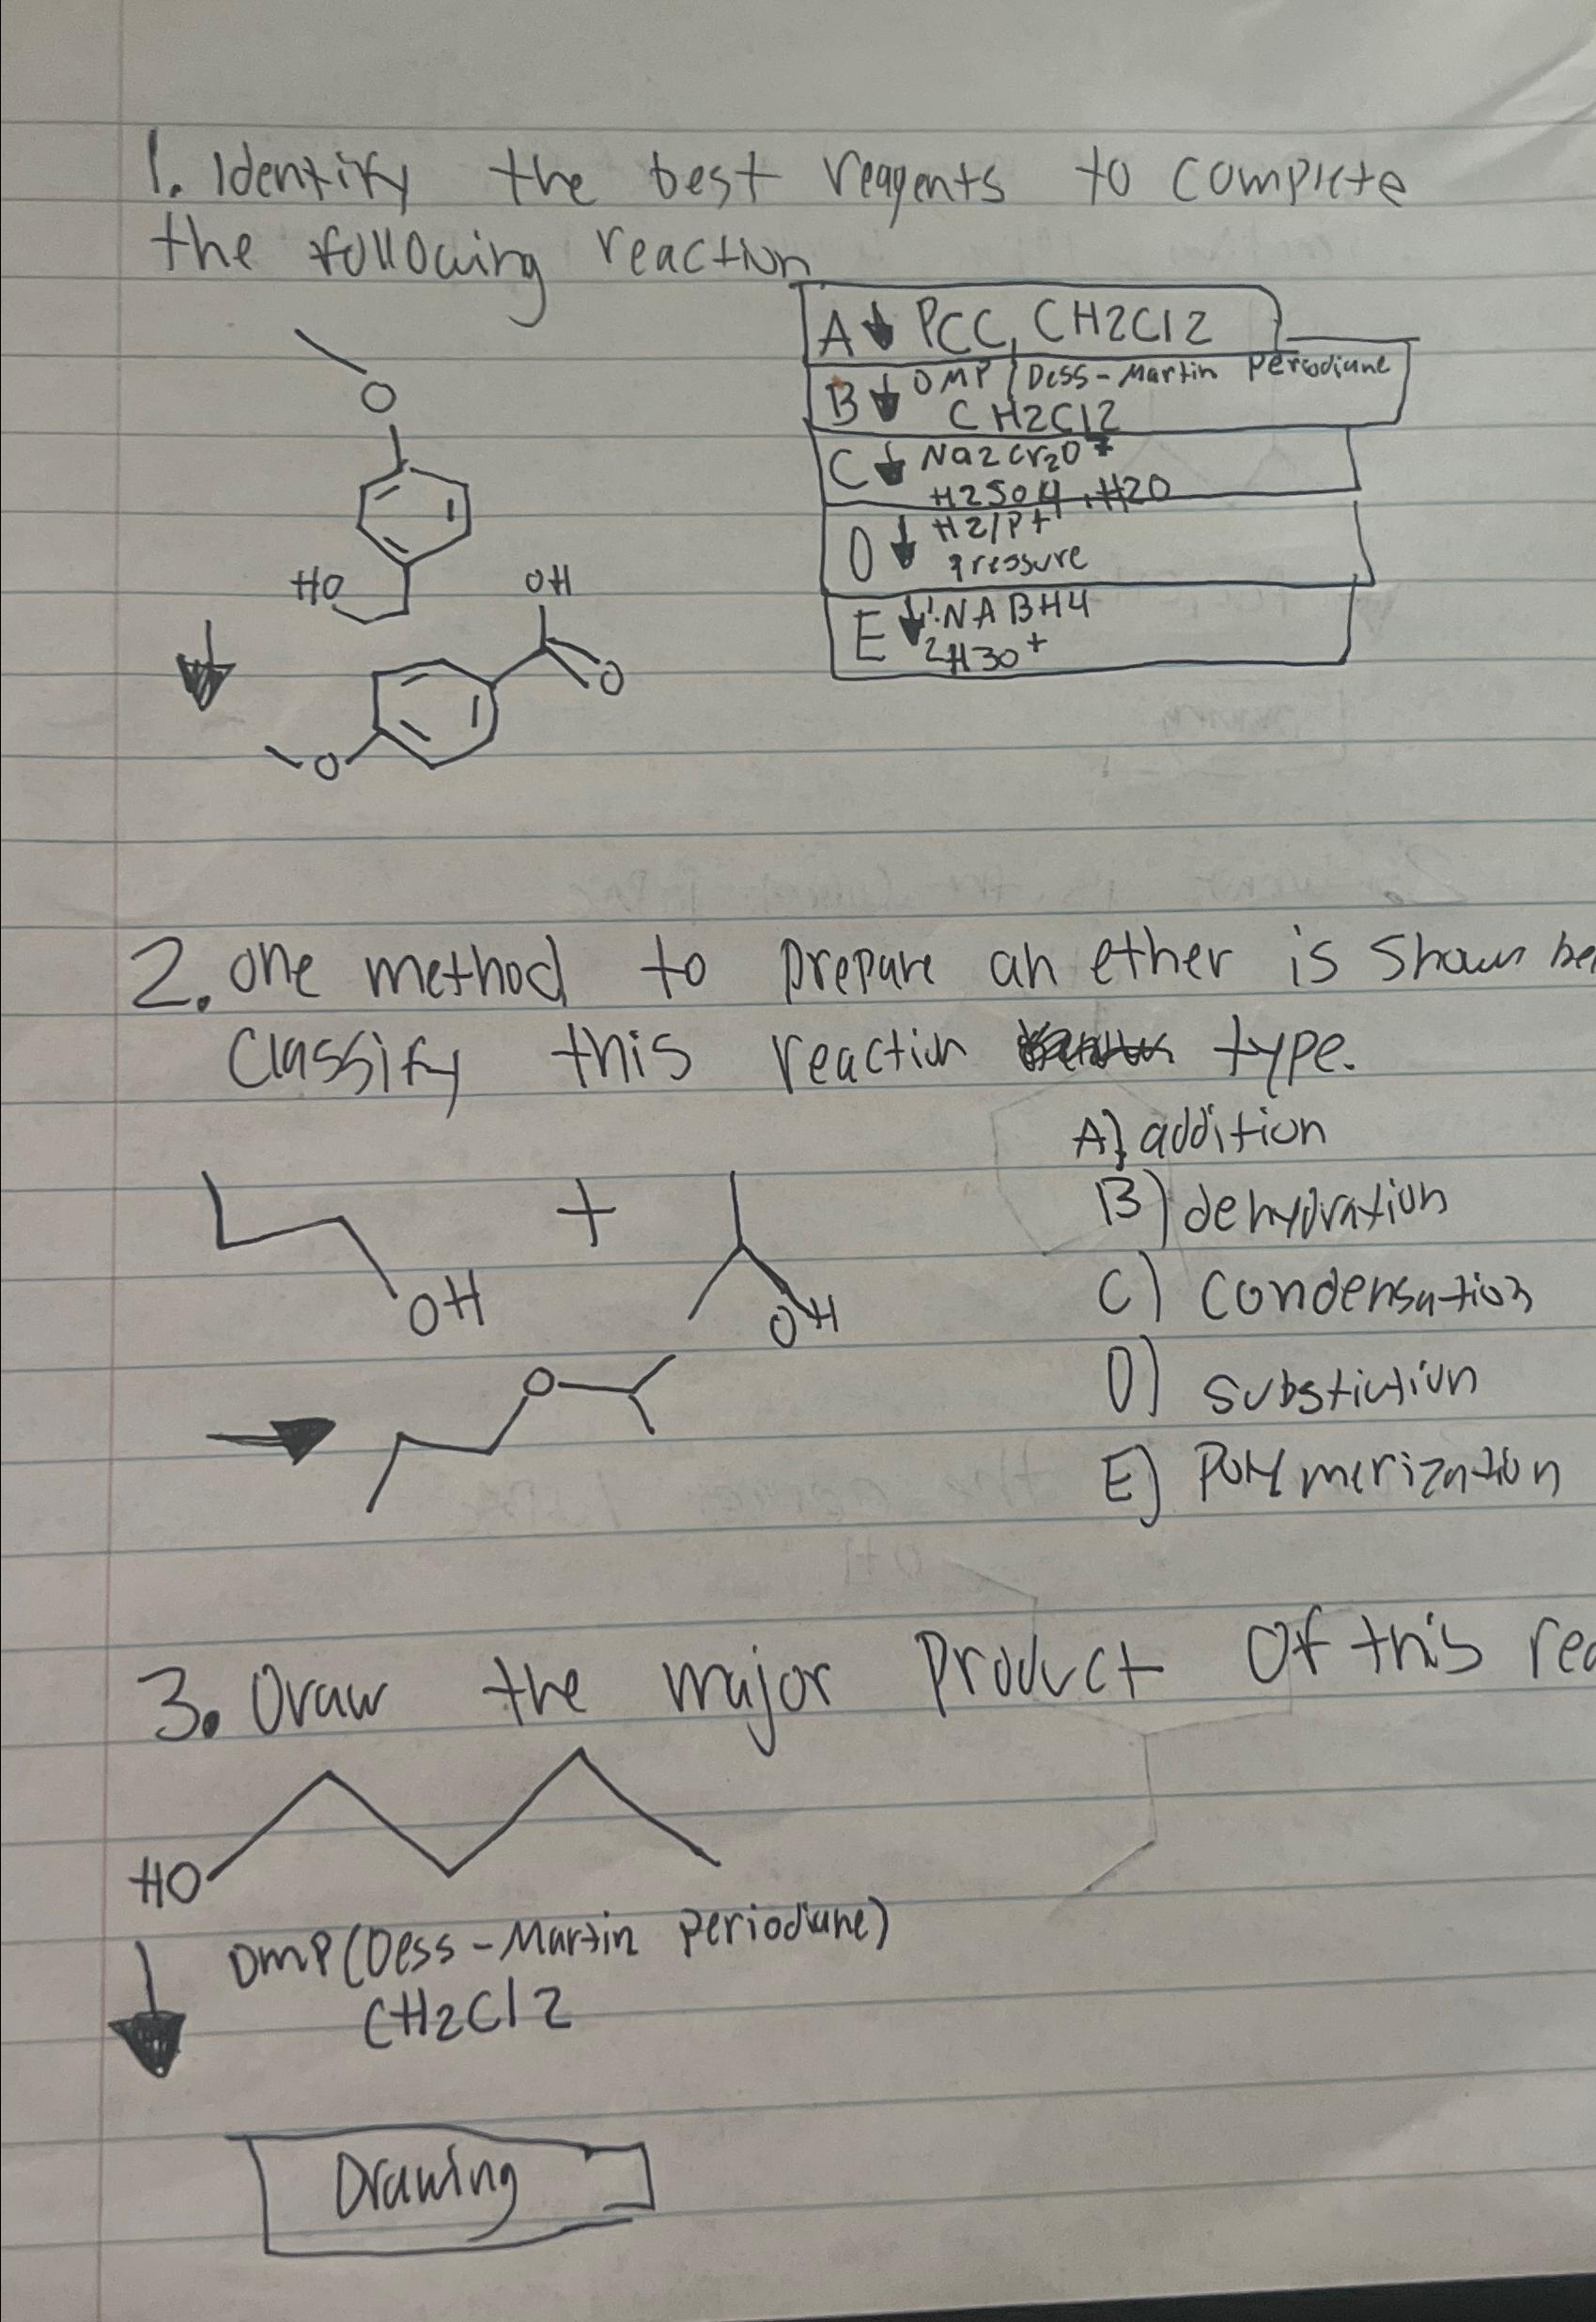 1. Identify the best reagents to complete
the following reaction
A PCC, CH2Cl2
B DMP / Dess-Martin Periodiane
CH2Cl2
C Na2Cr2O7
H2SO4, H2O
D H2/Pt
pressure
E 1. NABH4
2 H3O+
O
HO
OH
O
O
2. One method to prepare an ether is shown be
Classify this reaction type.
A) addition
B) dehydration
C) Condensation
D) substiution
E) Polymerization
+
OH
OH
O
3. Draw the major product Of this rea
HO
DMP (Dess-Martin Periodiane)
CH2Cl2
Drawing